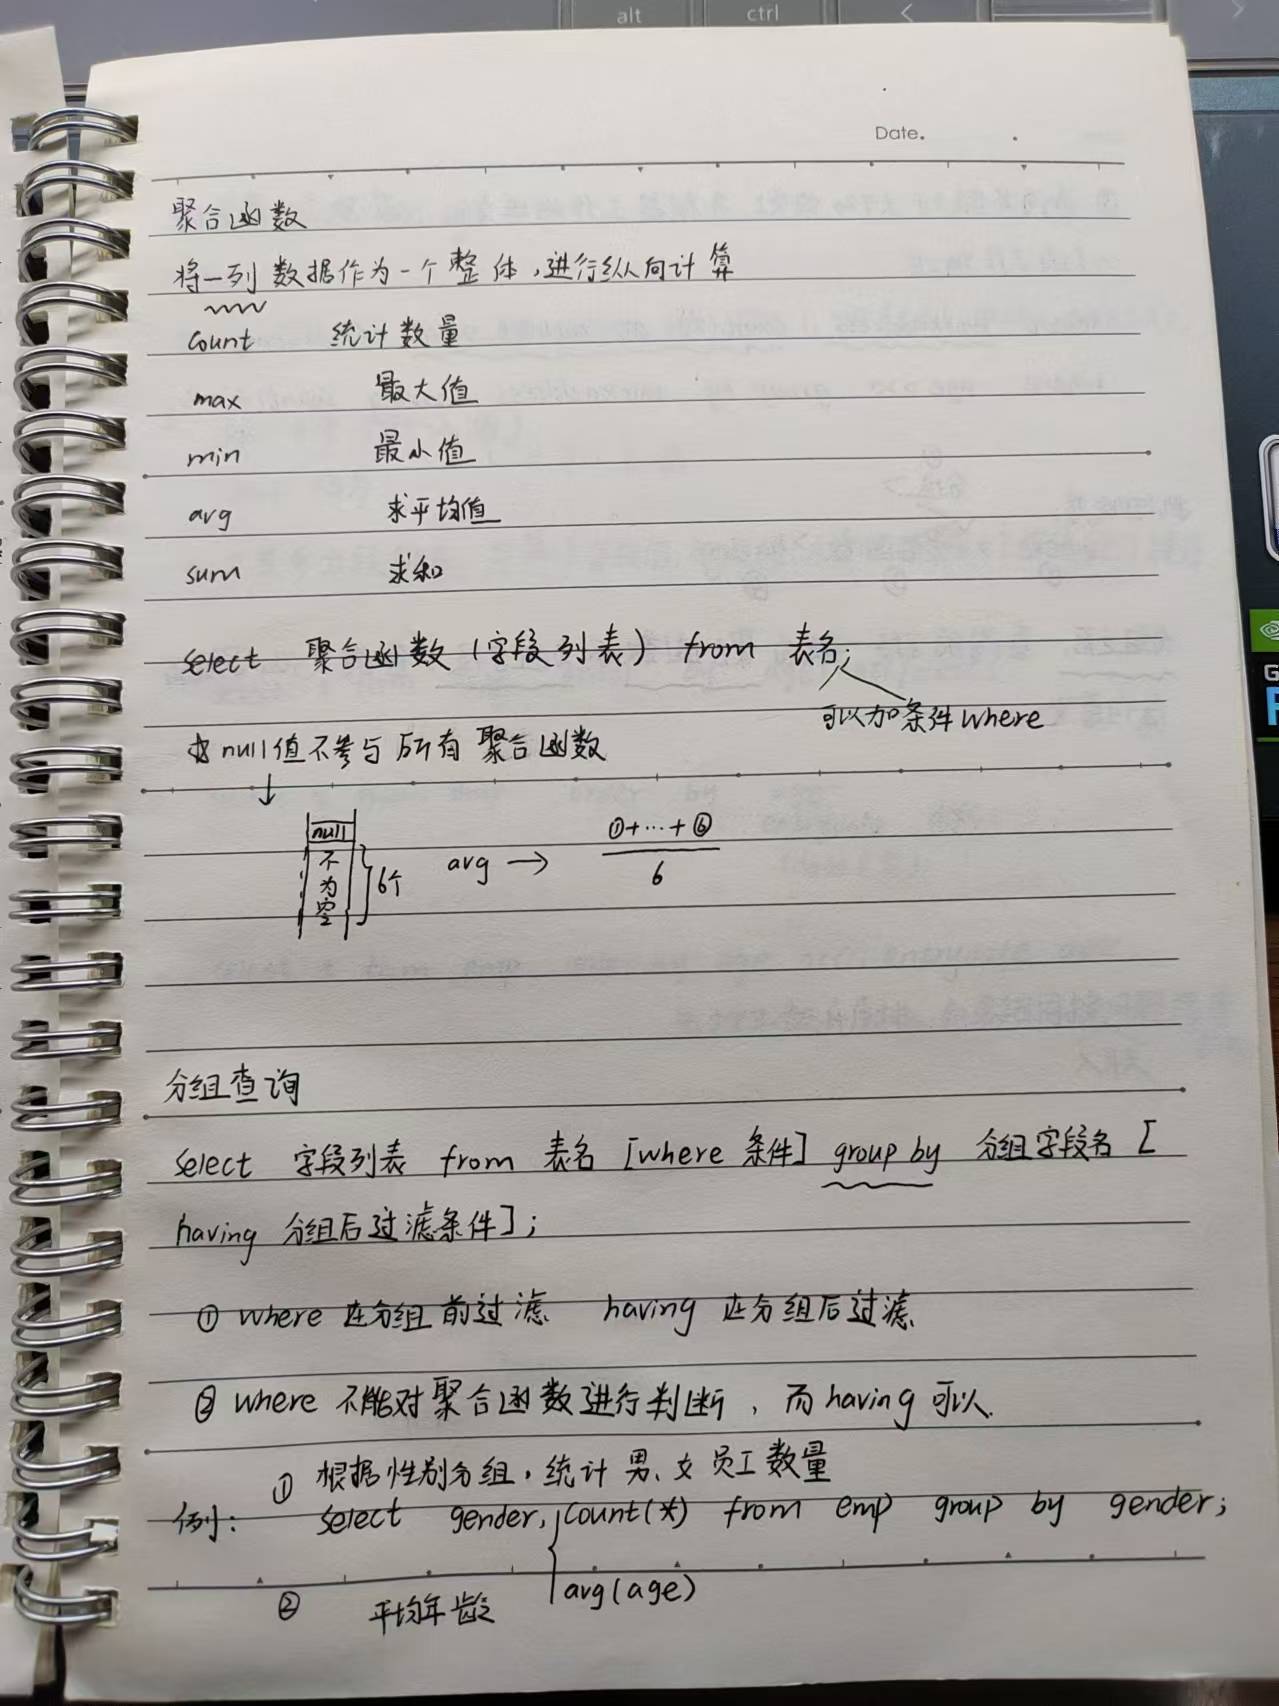 alt ctrl
Date.
聚合函数
将一列数据作为一个整体,进行纵向计算
count 统计数量
max 最大值
min 最小值
avg 求平均值
sum 求和
select 聚合函数(字段列表) from 表名;
可以加条件where
null值不参与所有聚合函数
null
不为空
6个
avg → ①+…+⑥
6
分组查询
select 字段列表 from 表名 [where 条件] group by 分组字段名 [
having 分组后过滤条件];
① where 在分组前过滤 having 在分组后过滤
② where 不能对聚合函数进行判断,而having 可以.
① 根据性别分组,统计男、女员工数量
例: select gender, count(*) from emp group by gender;
② 平均年龄 avg(age)